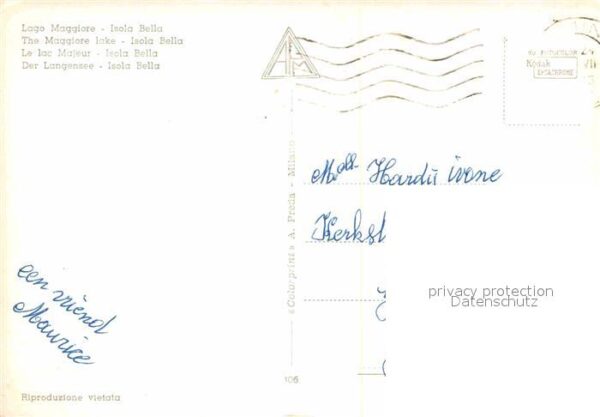 Lago Maggiore - Isola Bella
The Maggiore lake - Isola Bella
Le lac Majeur - Isola Bella
Der Langensee - Isola Bella
Kodak
EKTACHROME
Mell. Hardÿ ivone
Kerkst
privacy protection
Datenschutz
een vriend
Maurice
«Colorprint» A. Preda - Milano
106
Riproduzione vietata